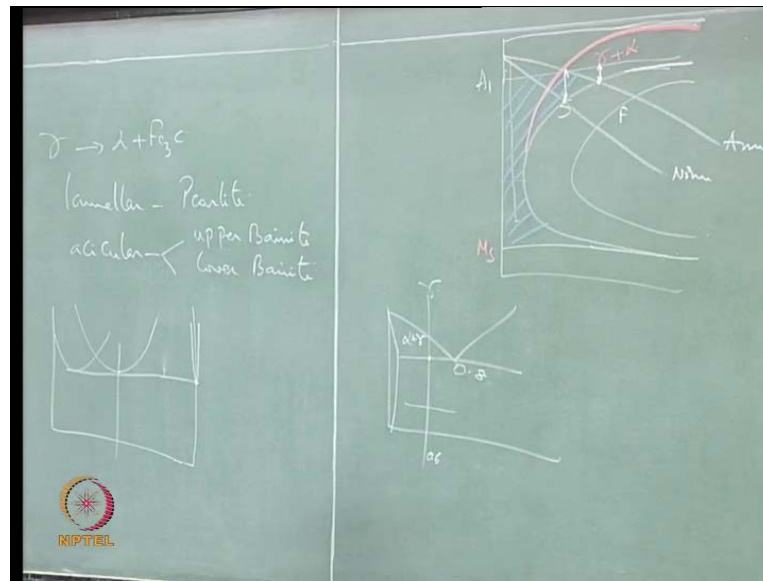 γ → α + Fe3C
lamellar - Pearlite
acicular - upper Bainite
lower Bainite
γ + α
A1
S
F
Ann
Norm
Ms
γ
α+γ
0.8
NPTEL